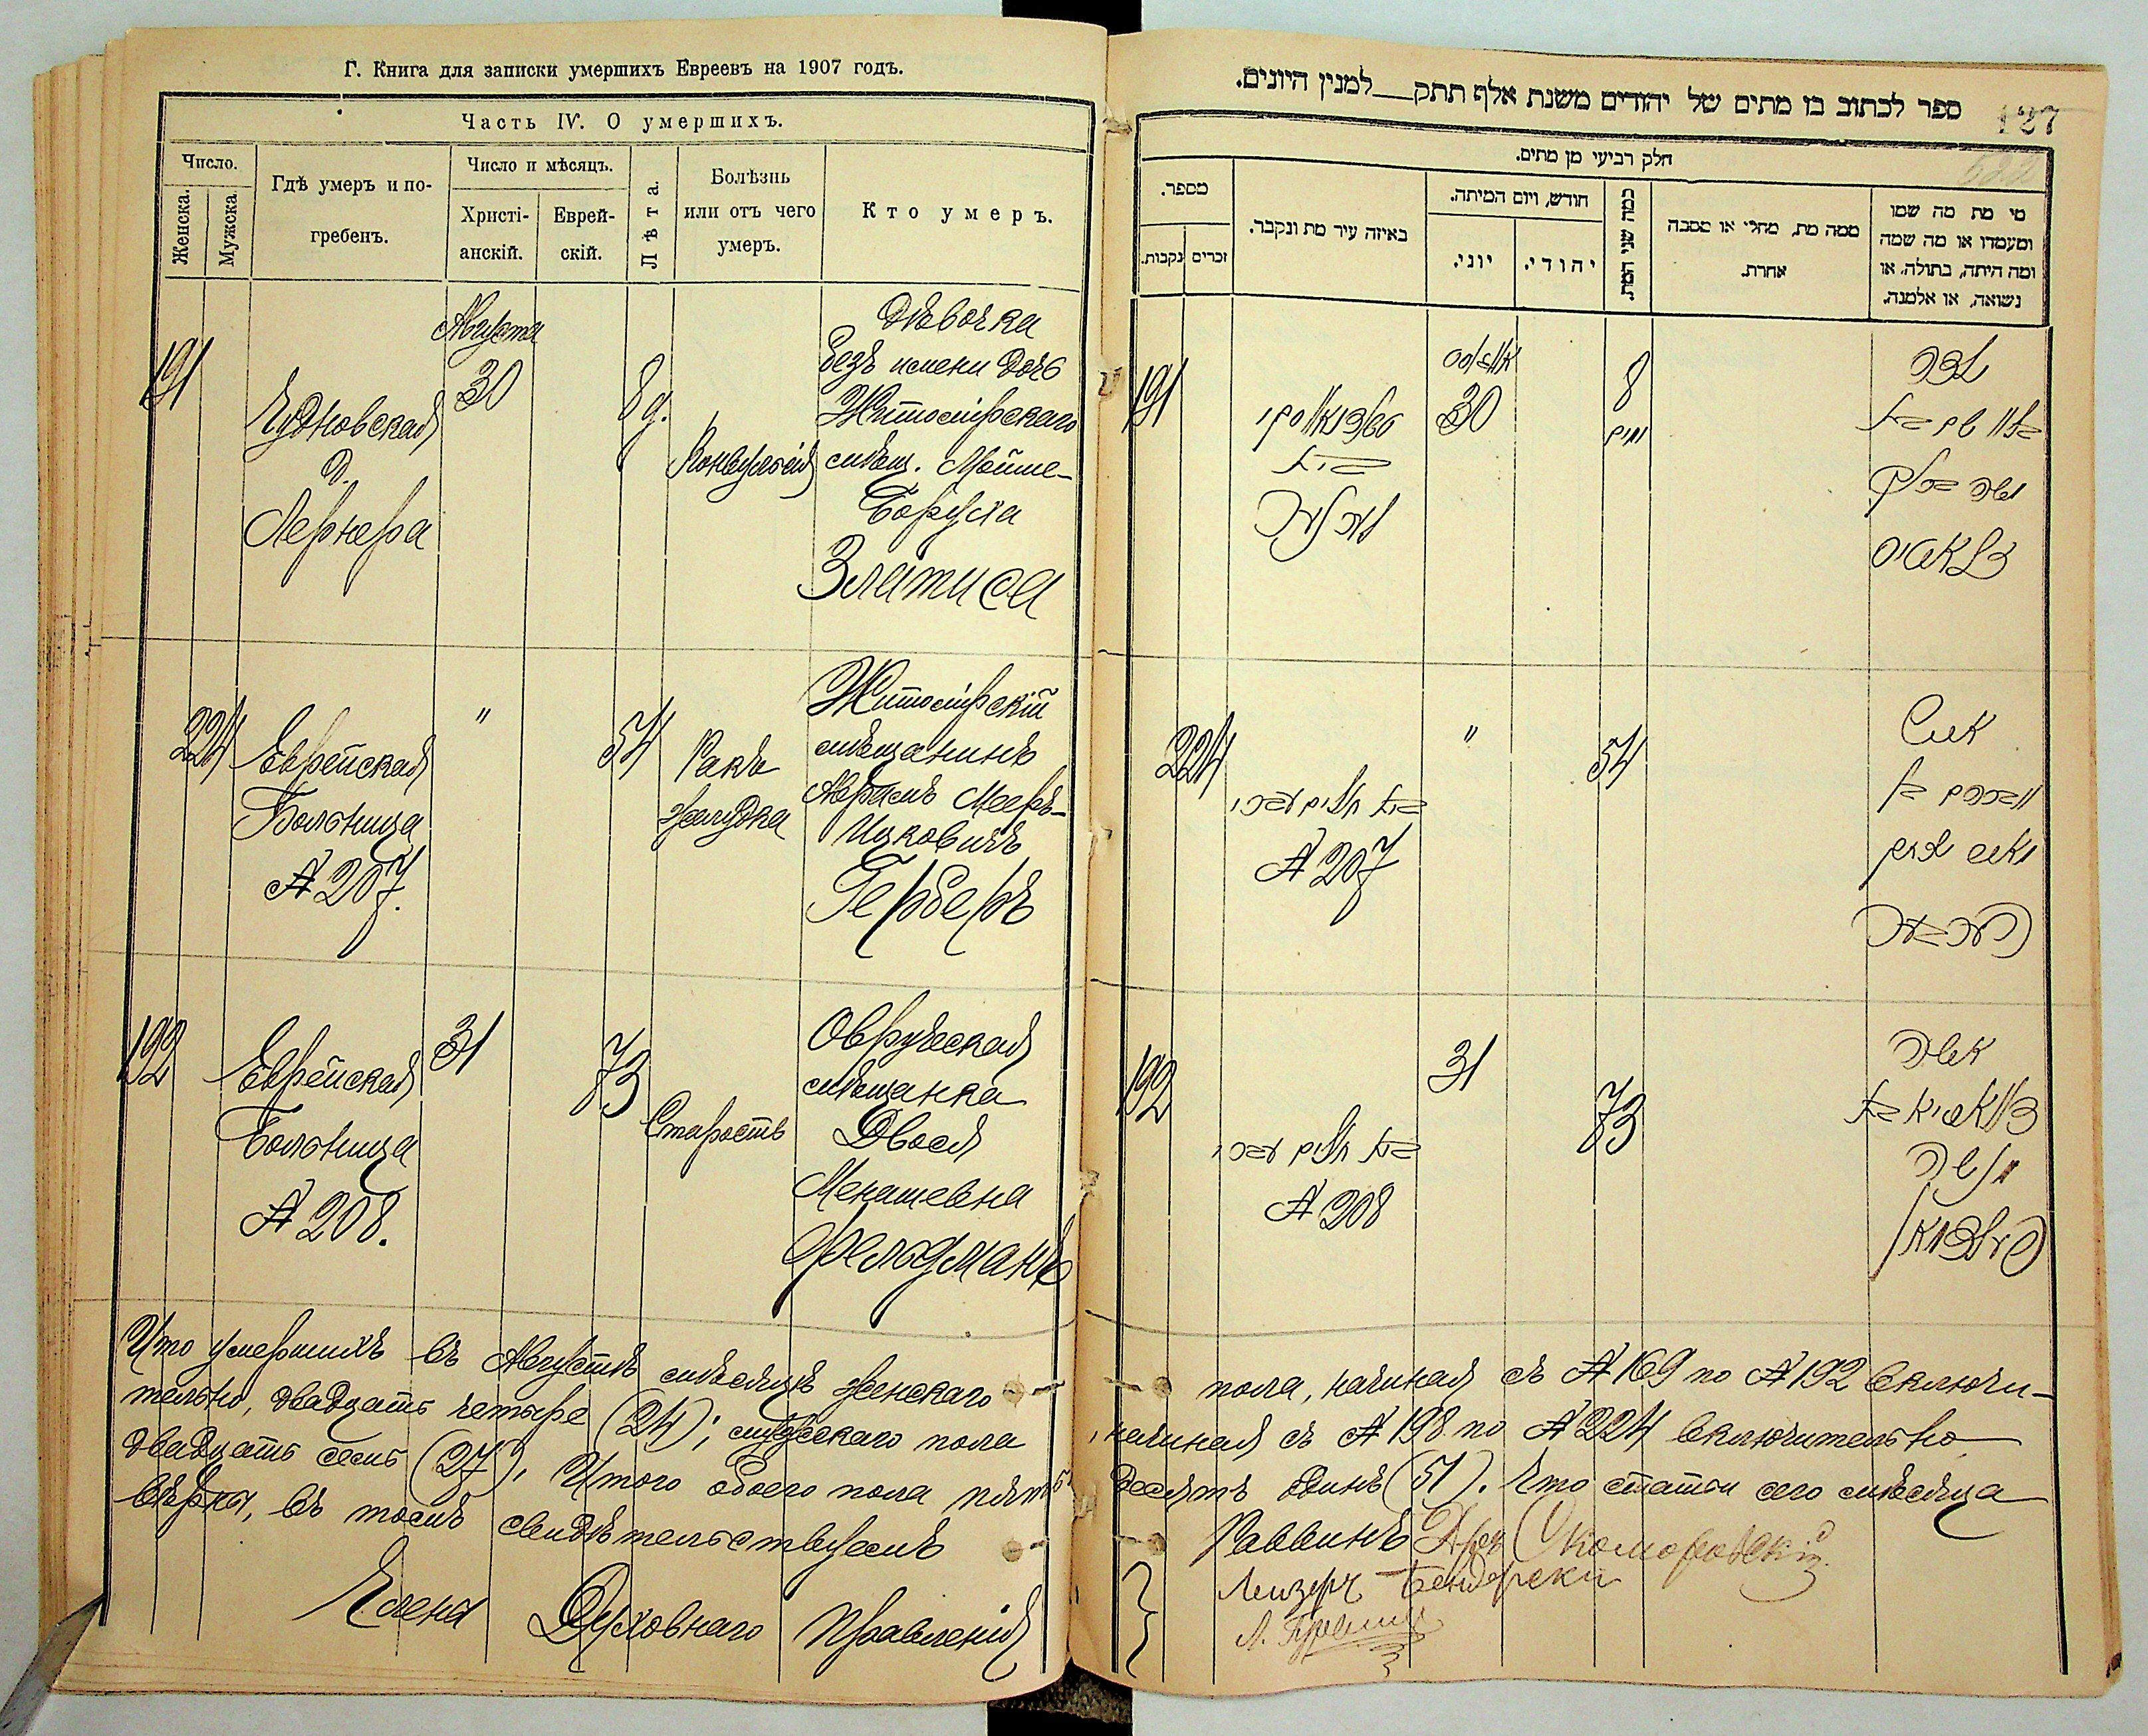 Г. Книга для записки умершихъ Евреевъ на 1907 годъ.
Часть IV. О умершихъ.
Число.
Женска.
Мужска.
Гдѣ умеръ и по-
гребенъ.
Число и мѣсяцъ.
Христі-
анскій.
Еврей-
скій.
Лѣта.
Болѣзнь
или отъ чего
умеръ.
Кто умеръ.
191
Чудновская
д.
Лернера
Августа
30
8 д.
Дѣвочка
безъ имени дочь
Житомірскаго
мѣщ. Мойше-
Боруха
Златиса
224
Еврейская
Больница
№ 207.
"
54
Ракъ
желудка
Житомірскій
мѣщанинъ
Абрамъ Мееръ-
Ицковичъ
Герберъ
192
Еврейская
Больница
№ 208.
31
73
Старость
Овручская
мѣщанка
Двося
Менашевна
Фельдманъ
Что умершихъ въ Августѣ мѣсяцѣ женскаго
тельно, двадцать четыре (24); мужескаго пола
двадцать семь (27), Итого обоего пола пять
вѣрны, въ томъ свидѣтельствуемъ
Члены Духовнаго Правленія
ספר לכתוב בו מתים של יהודים משנת אלף תתק___למנין היונים.
127
חלק רביעי מן מתים.
מספר.
נקבות.
זכרים
באיזה עיר מת ונקבר.
חודש, ויום המיתה.
יוני.
יהודי.
כמה שני המת.
ממה מת, מחלי או מסבה
אחרת.
מי מת מה שמו
ומעמדו או מה שמה
ומה היתה, בתולה, או
נשואה, או אלמנה.
191
בית
לערנער
אווגוסט
30
8
ימים
ילדה
בלי שם בת
משה ברוך
זלאטיס
224
בית חולים עברי
№ 207
"
54
איש
אברהם בן
מאיר יצחק
גערבער
192
בית חולים עברי
№ 208
31
73
אשה
דוואסיא בת
מנשה
פעלדמאן
пола, начиная съ № 169 по № 192 включи-
начиная съ № 198 по № 224 включительно
десятъ одинъ (51). Что статьи сего мѣсяца
Раввинъ Д-ръ Скоморовскій
Лейзеръ Бендерски